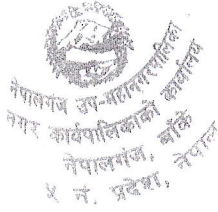 नेपालगंज उप-महानगरपालिका
नगर कार्यपालिकाको कार्यालय
नेपालगंज, बाँके
५ नं. प्रदेश, नेपाल